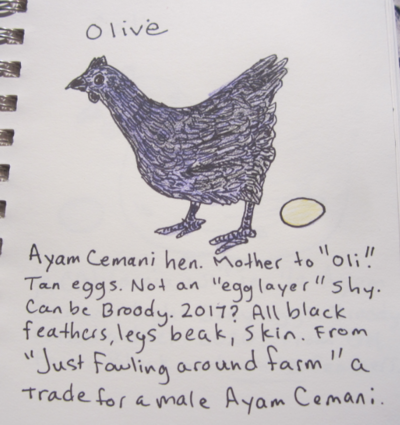 Olive
Ayam Cemani hen. Mother to "Oli".
Tan eggs. Not an "egg layer" Shy.
Can be Broody. 2017? All black
feathers, legs beak, Skin. From
"Just Fowling around farm" a
trade for a male Ayam Cemani.